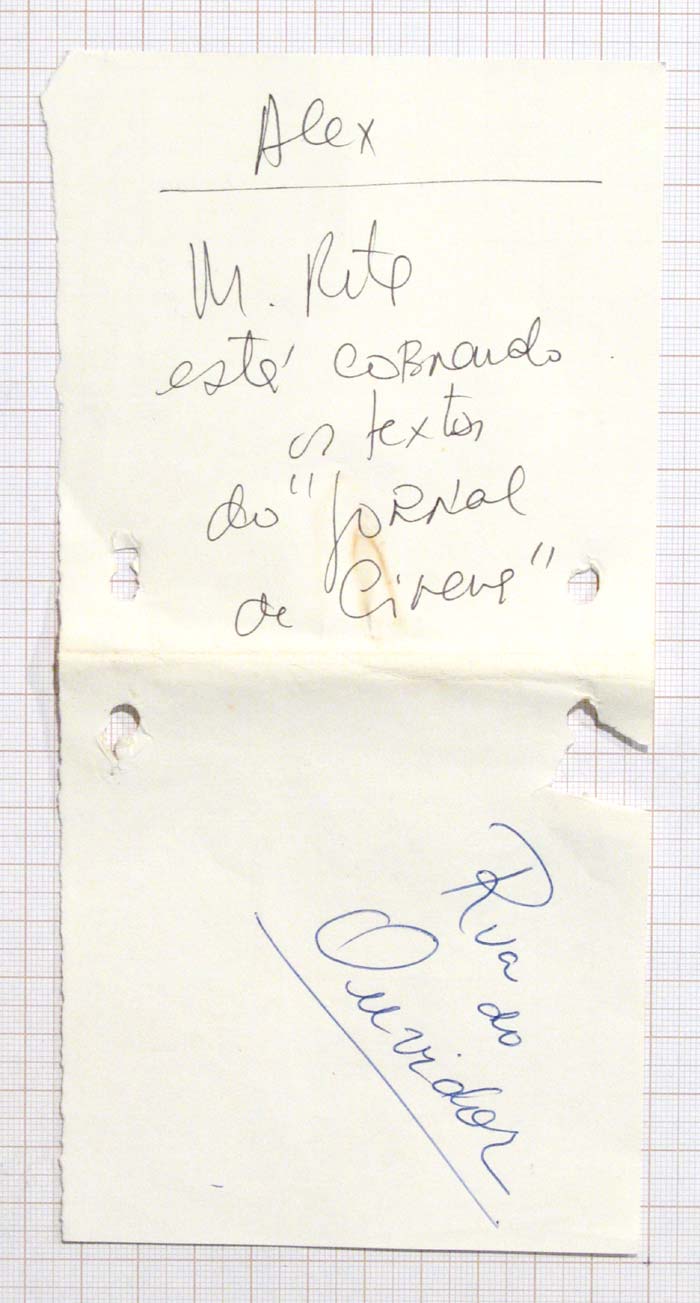 Alex
M. Rita
está cobrando
os textos
do "Jornal
de Cirene"
Rua do
Ouvidor